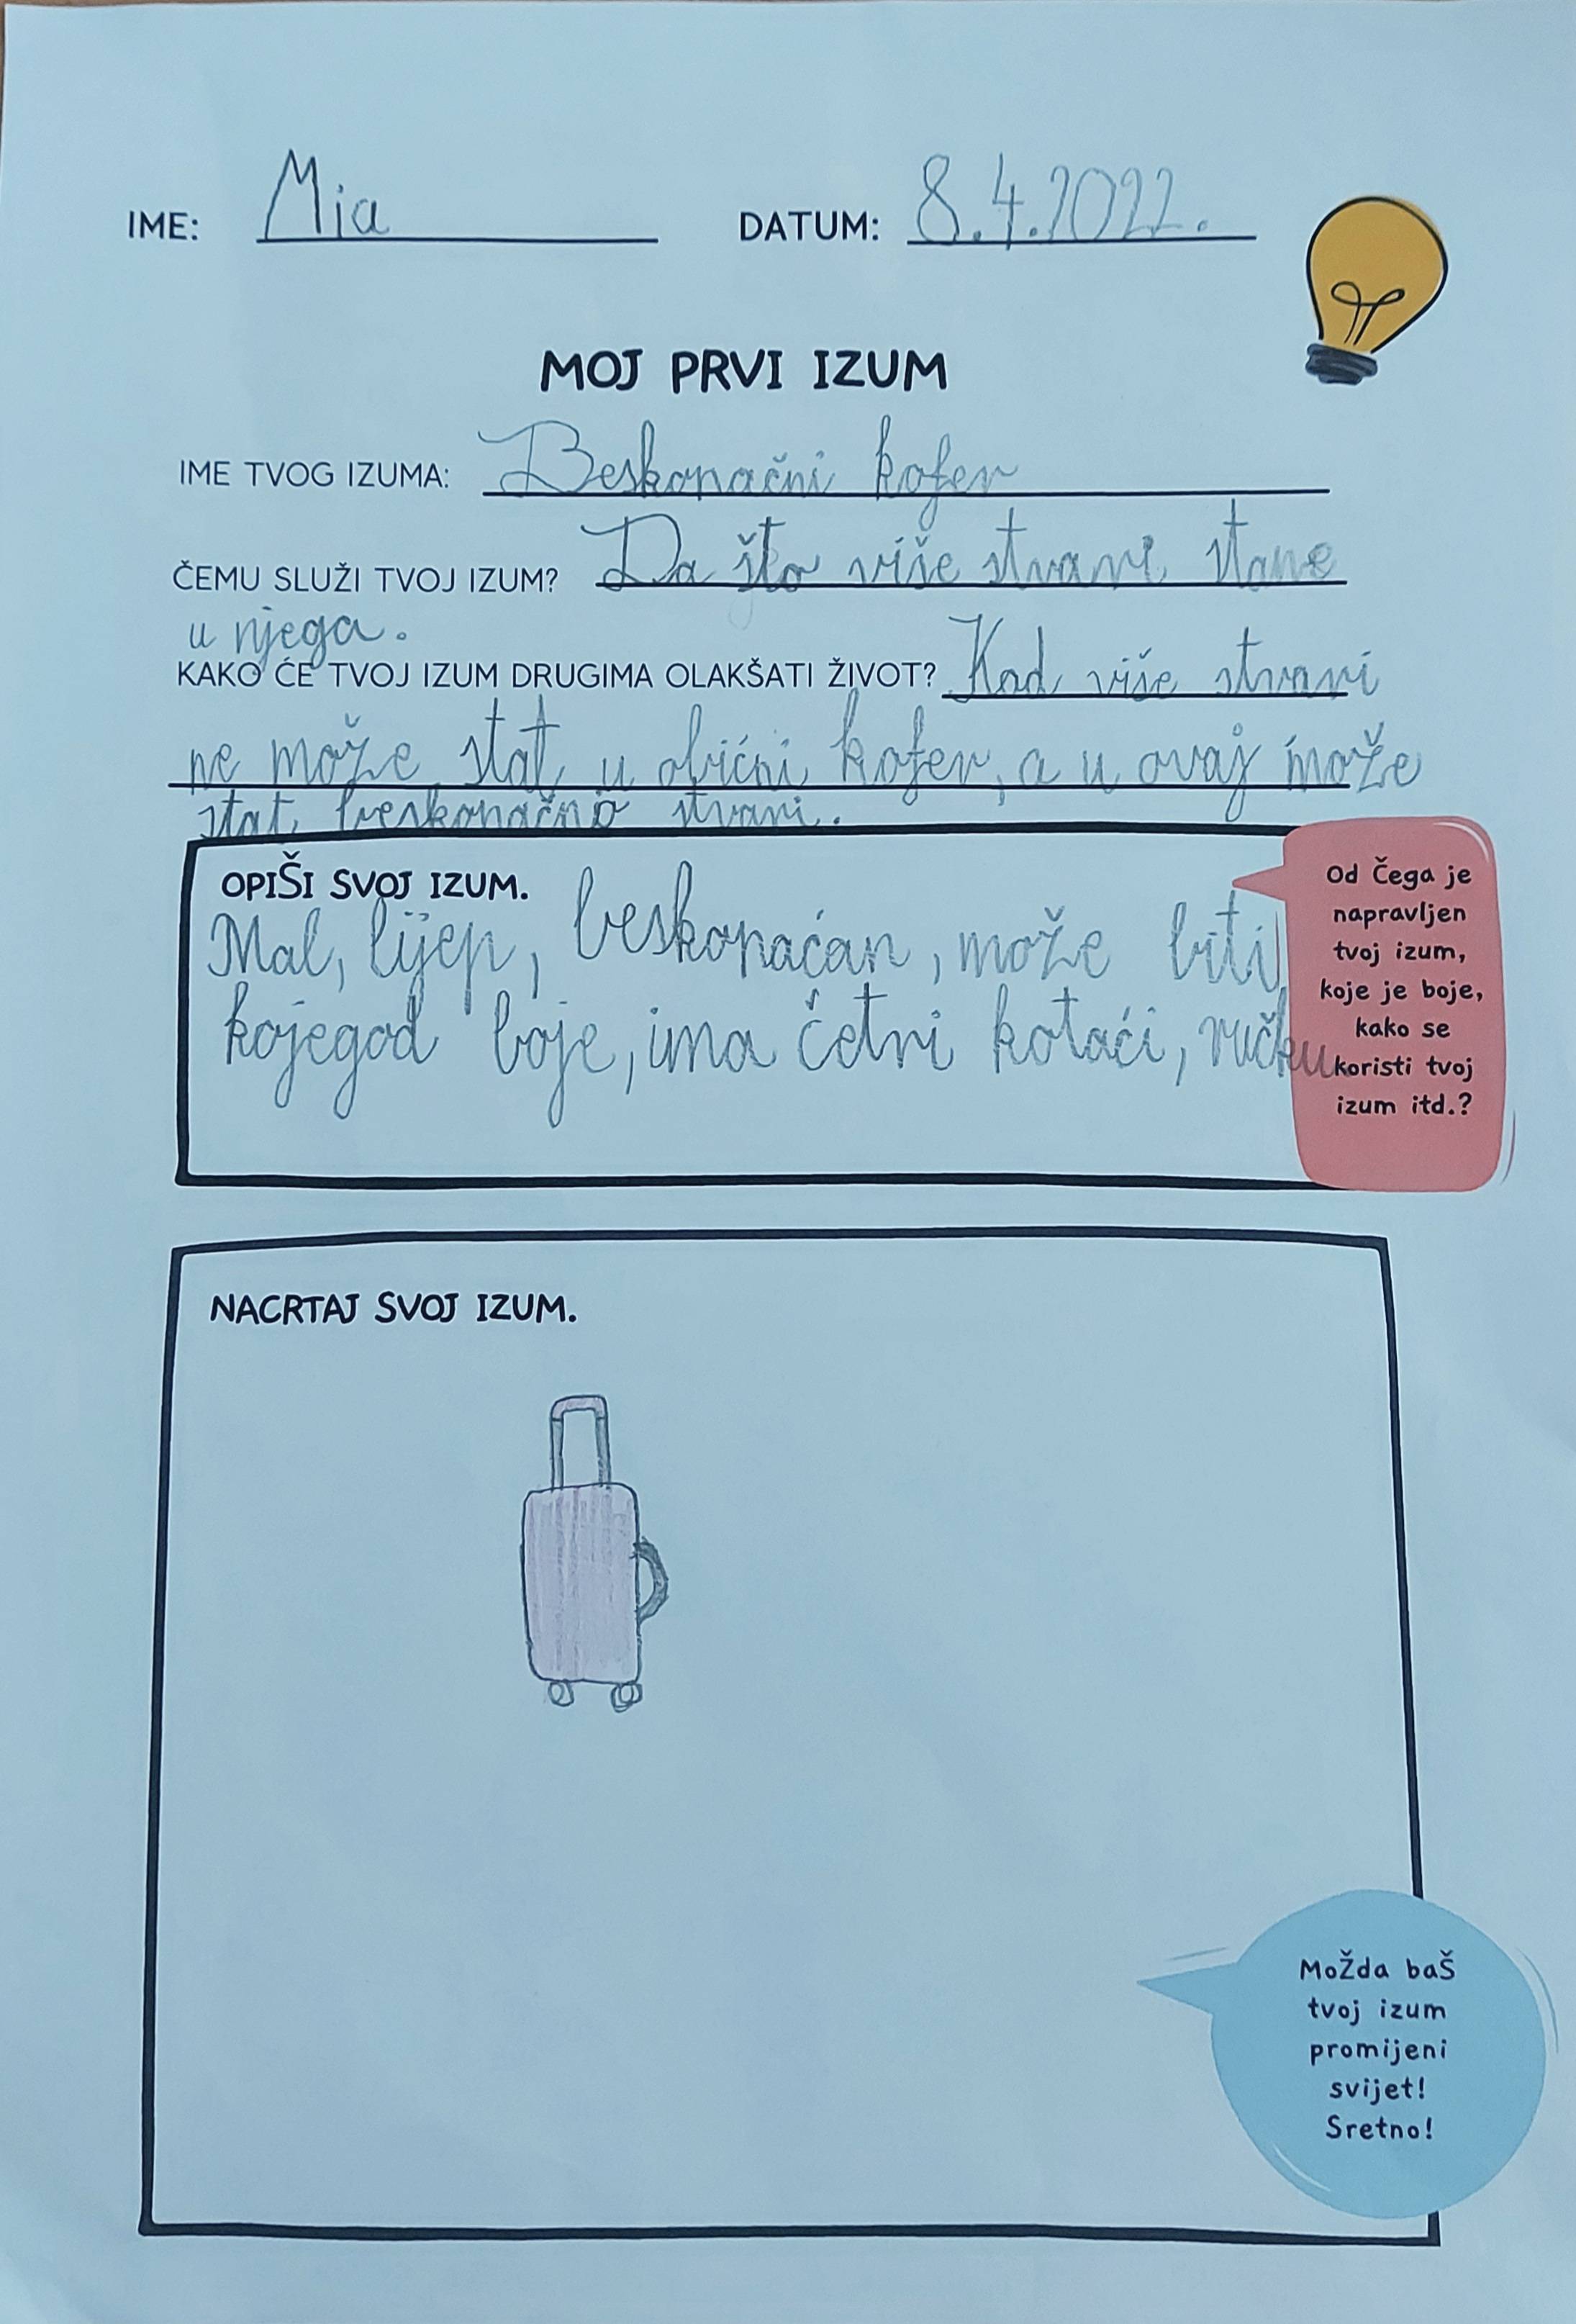 IME: Mia DATUM: 8.4.2022.
MOJ PRVI IZUM
IME TVOG IZUMA: Beskonačni kofer
ČEMU SLUŽI TVOJ IZUM? Da što više stvari stane
u njega.
KAKO ĆE TVOJ IZUM DRUGIMA OLAKŠATI ŽIVOT? Kad više stvari
ne može stat u obićni kofer, a u ovaj može
stat beskonačno stvari.
OPIŠI SVOJ IZUM.
Mal, lijep, beskonaćan, može biti
kojegod boje, ima ćetri kotaći, ručku.
Od Čega je
napravljen
tvoj izum,
koje je boje,
kako se
koristi tvoj
izum itd.?
NACRTAJ SVOJ IZUM.
MoŽda baŠ
tvoj izum
promijeni
svijet!
Sretno!